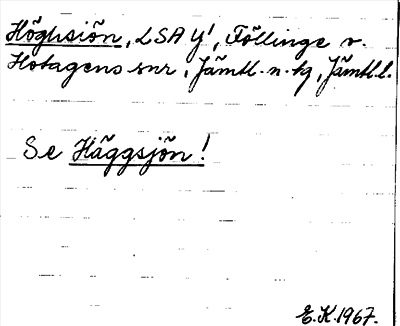 Höghsiön, LSA Y', Föllinge v.
Hotagens snr, Jämtl. n. kg, Jämtl. l.
Se Häggsjön!
E.K. 1967.